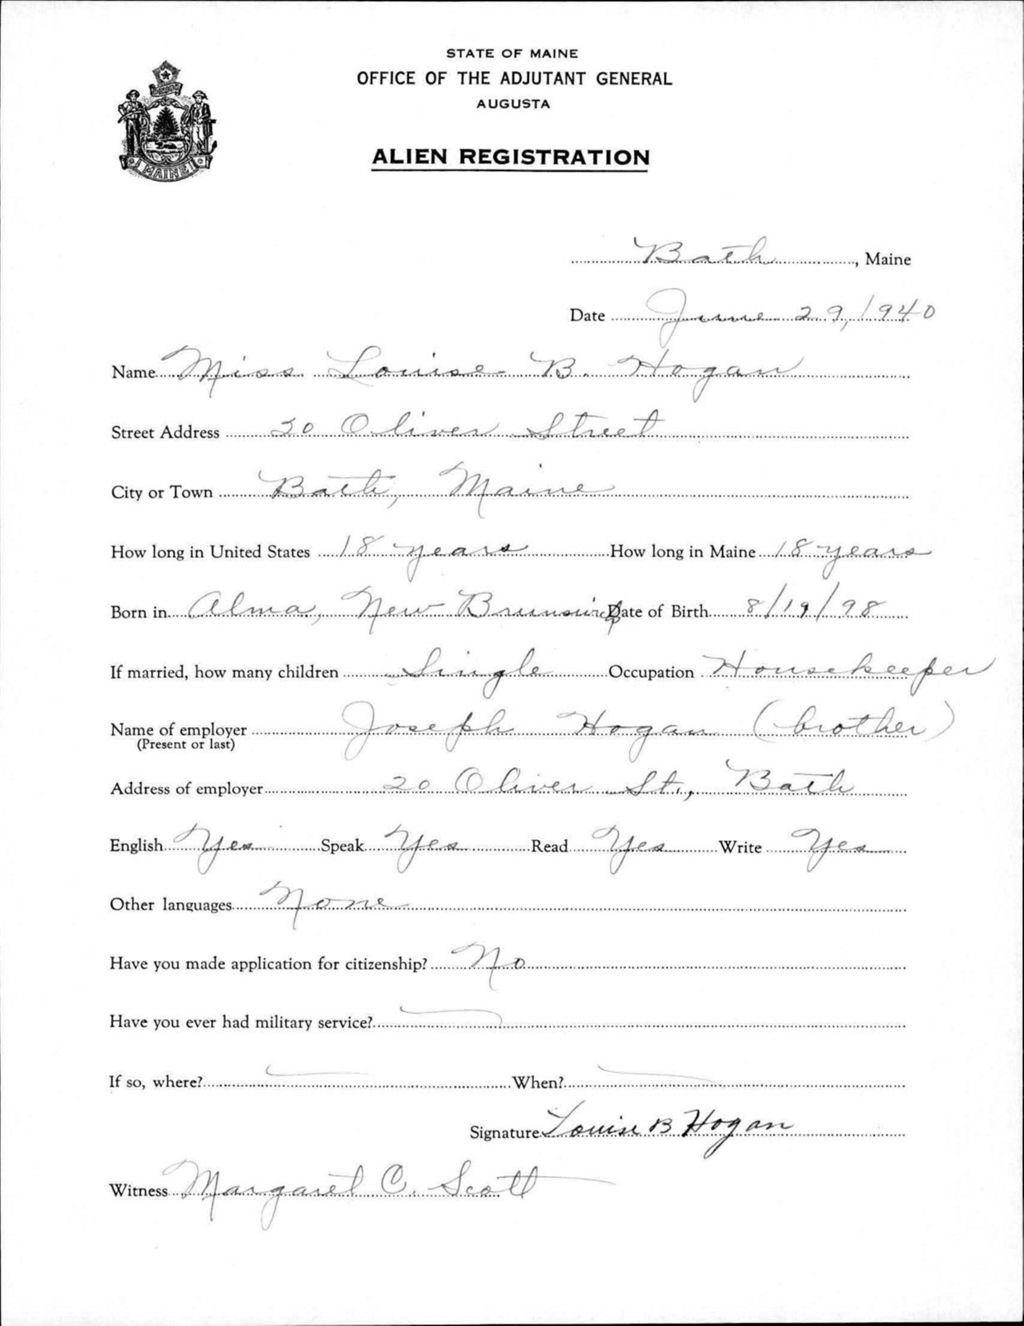 STATE OF MAINE
OFFICE OF THE ADJUTANT GENERAL
AUGUSTA
ALIEN REGISTRATION
MAINE
Bath, Maine
Date June 29, 1940
Name Miss Louise B. Hogan
Street Address 20 Oliver Street
City or Town Bath, Maine
How long in United States 18 years How long in Maine 18 years
Born in Alma, New Brunswick Date of Birth 8/19/98
If married, how many children Single Occupation Housekeeper
Name of employer Joseph Hogan (brother)
(Present or last)
Address of employer 20 Oliver St., Bath
English Yes Speak Yes Read Yes Write Yes
Other languages None
Have you made application for citizenship? No
Have you ever had military service? —
If so, where? — When? —
Signature Louise B Hogan
Witness Margaret C. Scott